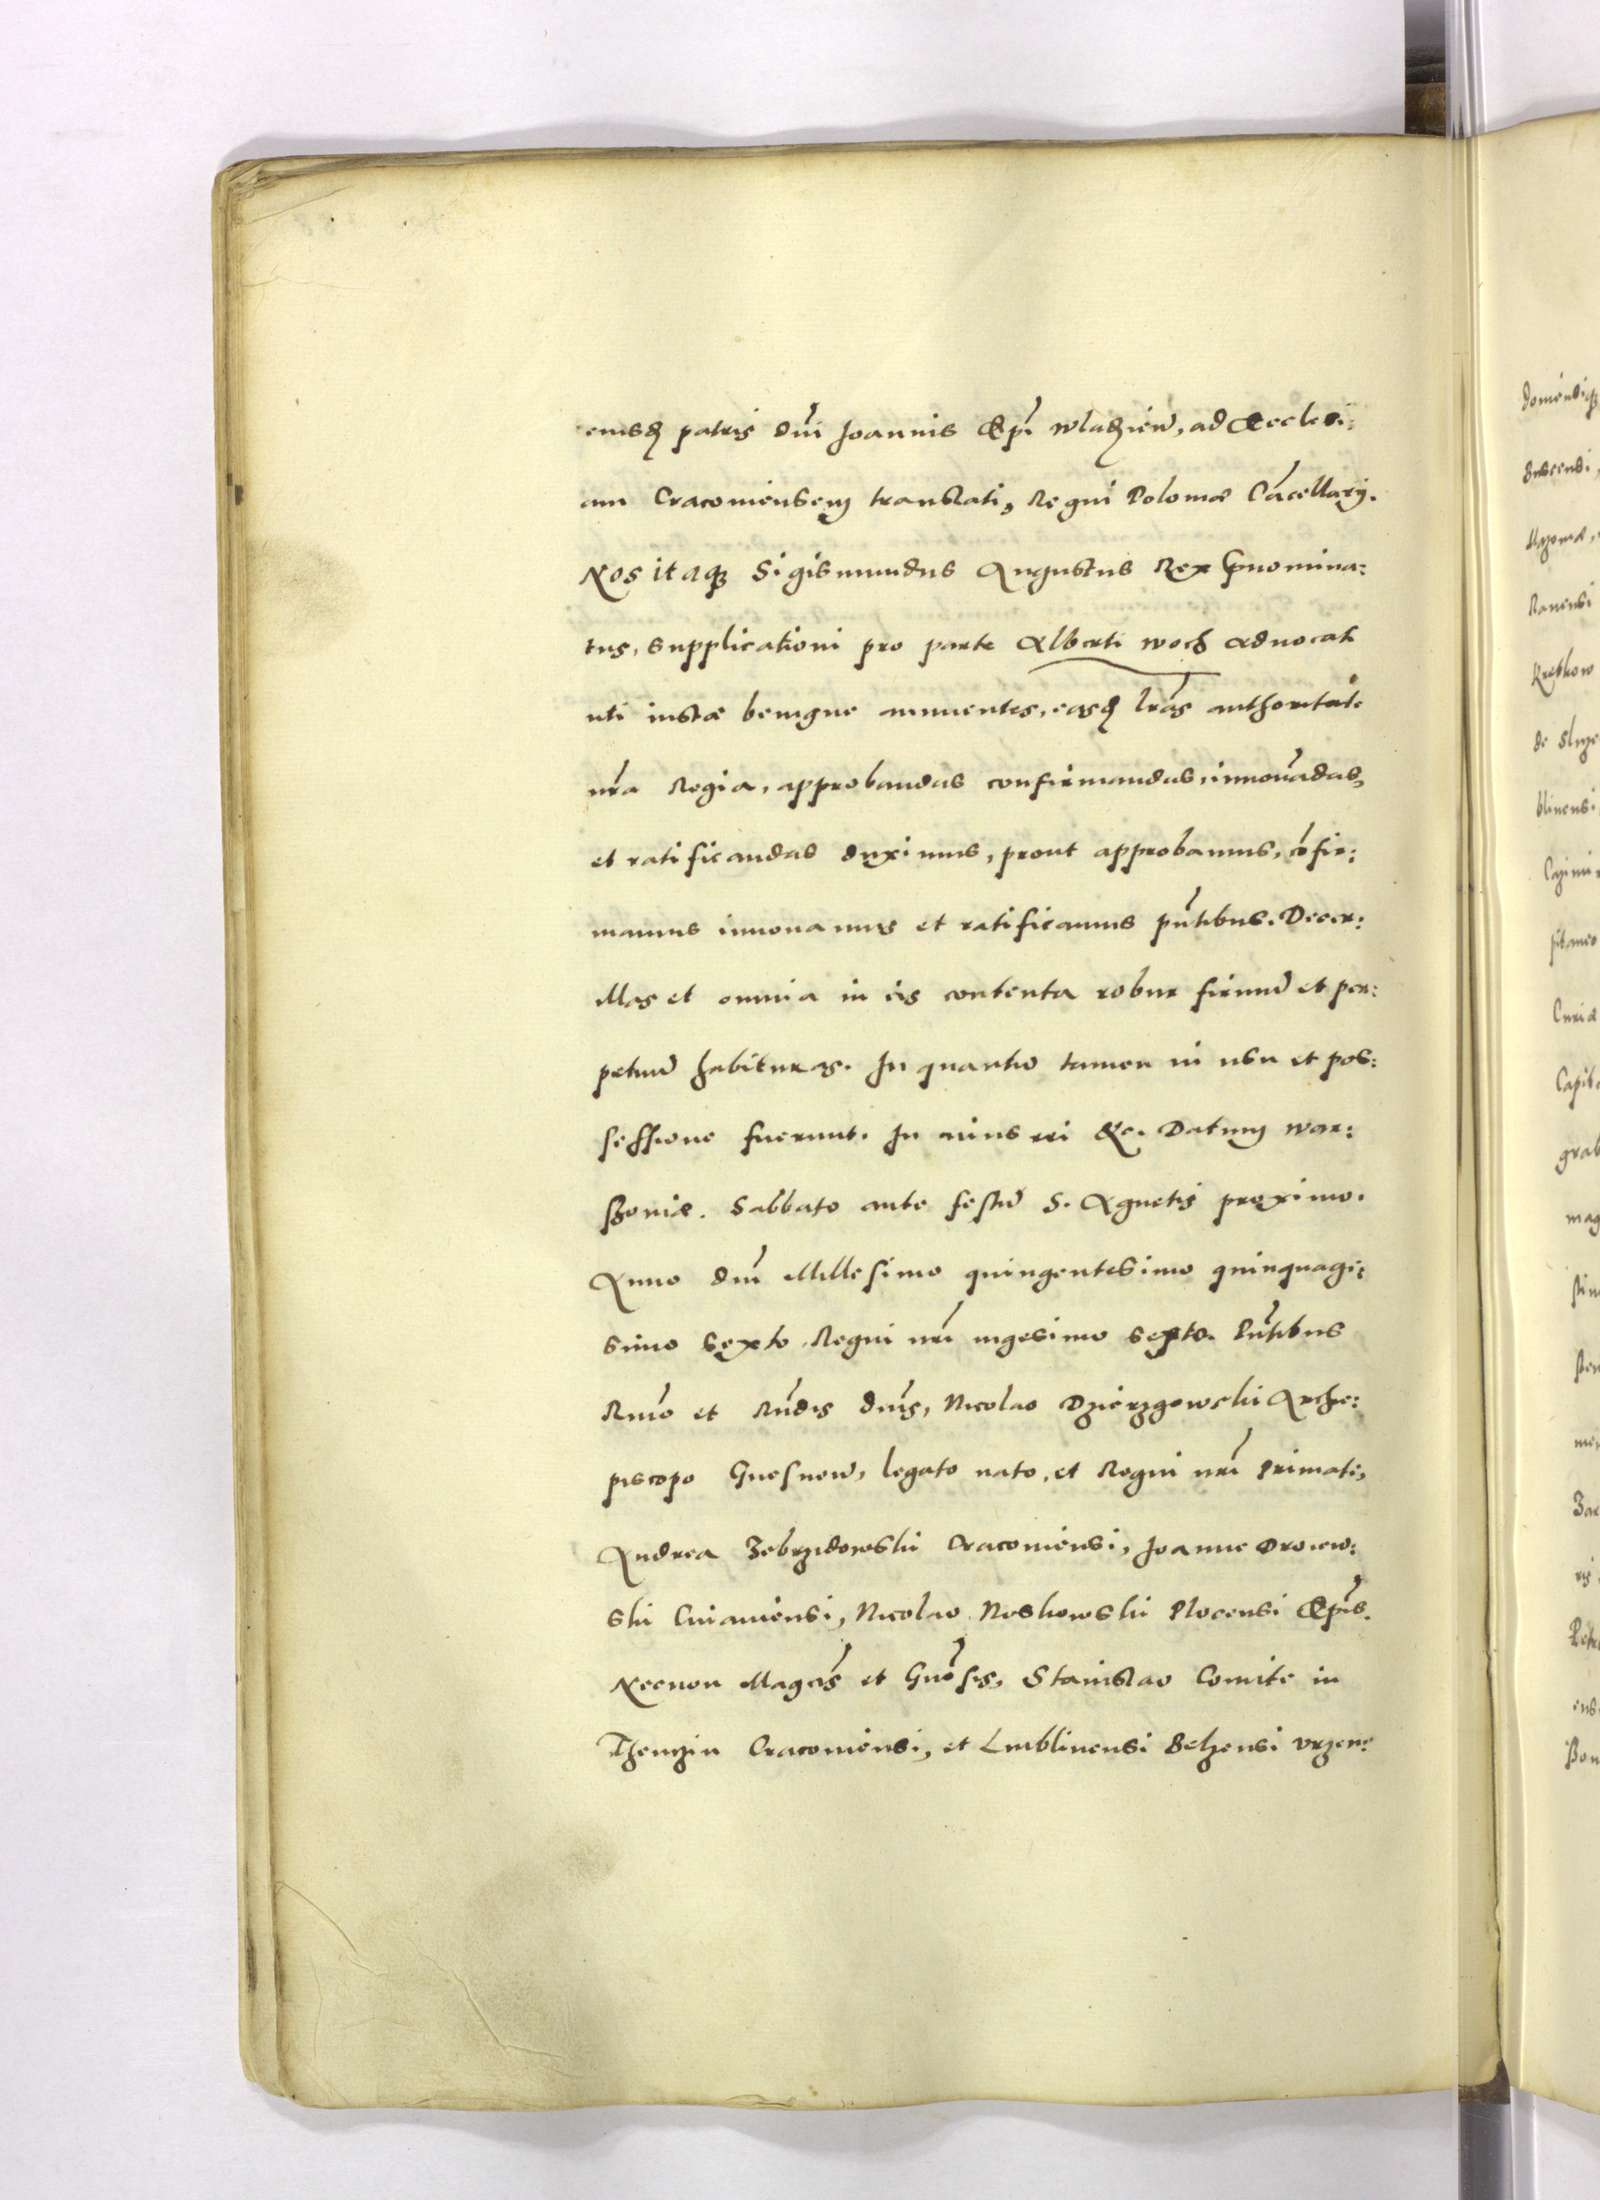 eiusdꝫ patris dn̄i Joannis Ep̄i Wladzien̄, ad Ecclesi:
am Cracoviensem translati, Regni Poloniæ Cācellarij.
Nos itaqꝫ Sigismundus Augustus Rex
tus, supplicationi pro parte Alberti Woch Advocati
uti iustæ benigne annuentes, easdꝫ lr̄as authoritate
nr̄a Regia, approbandas confirmandas, innovādas,
et ratificandas duximus, prout approbamus, cōfir:
mamus innovamus et ratificamus pn̄tibus. Decer:
illas et omnia in eis contenta robur firmū et per:
petuū habituras. In quantū tamen in usu et pos:
sessione fuerunt. In cuius rei &c. Datum War:
szoviæ. Sabbato ante festū S. Agnetis proximo.
Anno dn̄i Millesimo quingentesimo quinquagi:
simo sexto Regni nr̄i vigesimo sexto. Pn̄tibus
Rm̄o et Rn̄dis dn̄is, Nicolao Dzierzgowski Archie:
piscopo Gnesnen̄, legato nato, et Regni nr̄i Primate,
Andrea Zebrzidowski Cracoviensi, Joanne Droiew:
ski Cuiaviensi, Nicolao Noskowski Plocensi Ep̄is.
Necnon Magcīs et Gn̄osis, Stanislao Comite in
Thenczin Cracoviensi, et Lublinensi Belzensi Urzen:
domensiqꝫ
Mazoviæ,
Ravensi
Kretkow
de Sluze
blinensi
Cazimir
Curiæ
Capita
grab
mag